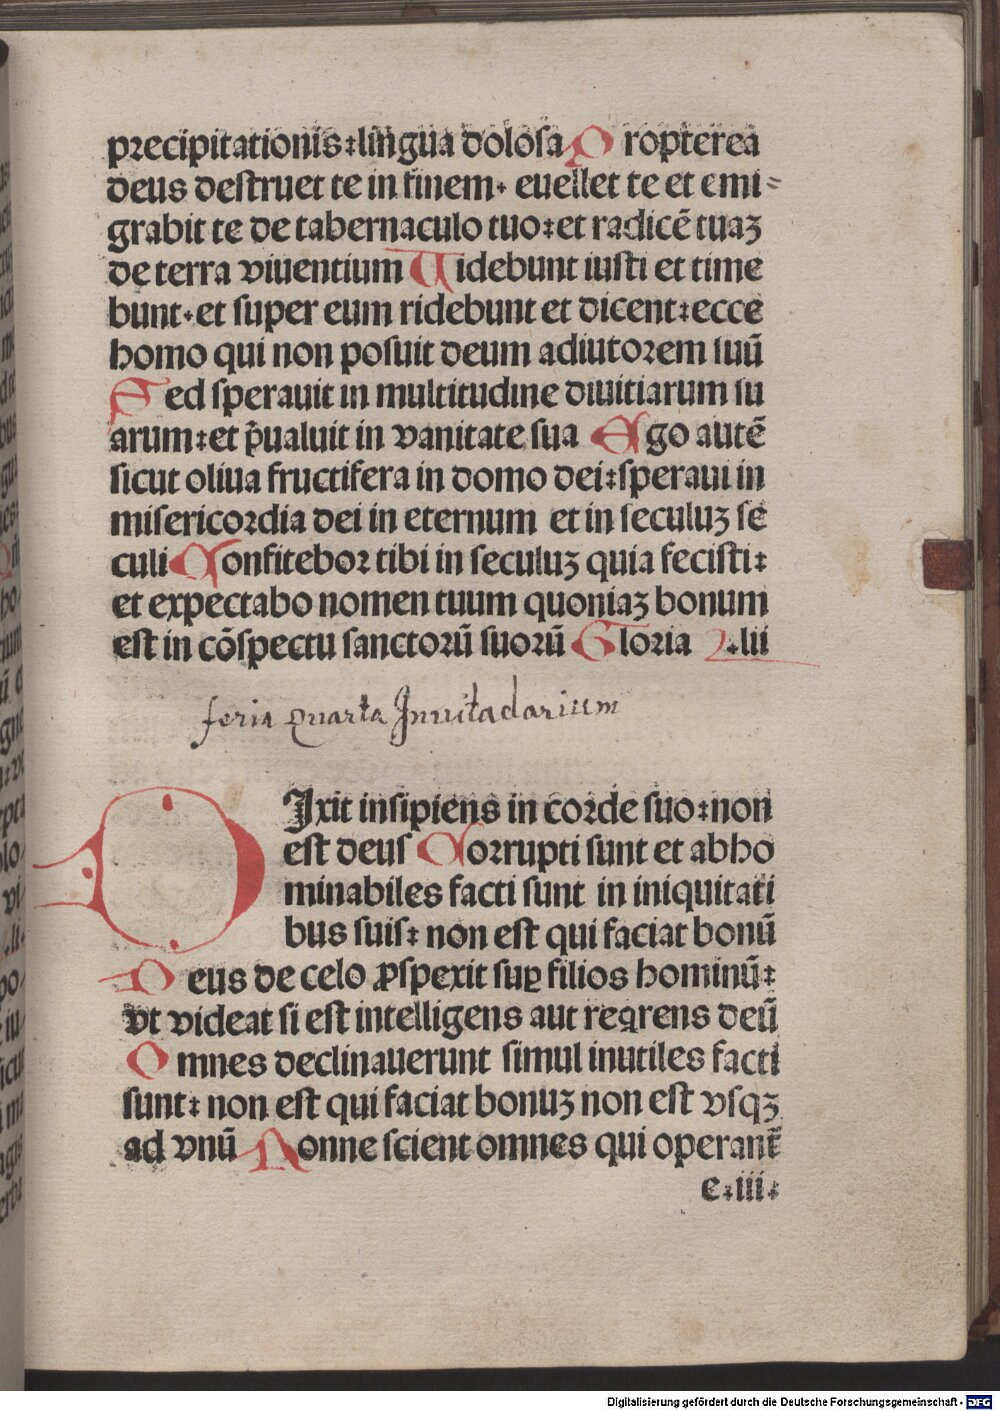 precipitationis:lingua dolosa Propterea
deus destruet te in finem· euellet te et emi=
grabit te de tabernaculo tuo:et radicē tuaꝫ
de terra viuentium Uidebunt iusti et time
bunt·et super eum ridebunt et dicent:ecce
homo qui non posuit deum adiutorem suū
Sed sperauit in multitudine diuitiarum su
arum:et p̄ualuit in vanitate sua Ego autē
sicut oliua fructifera in domo dei:speraui in
misericordia dei in eternum et in seculuꝫ se
culi Confitebor tibi in seculuꝫ quia fecisti:
et expectabo nomen tuum quoniaꝫ bonum
est in cōspectu sanctorū suorū Gloria ·lii
feria quarta Inuitadarium
DIxit insipiens in corde suo:non
est deus Corrupti sunt et abho
minabiles facti sunt in iniquitati
bus suis: non est qui faciat bonū
Deus de celo ꝓspexit suꝑ filios hominū:
vt videat si est intelligens aut reqrens deū
Omnes declinauerunt simul inutiles facti
sunt: non est qui faciat bonuꝫ non est vsqꝫ
ad vnū Nonne scient omnes qui operant̄
e·iii·
Digitalisierung gefördert durch die Deutsche Forschungsgemeinschaft - DFG